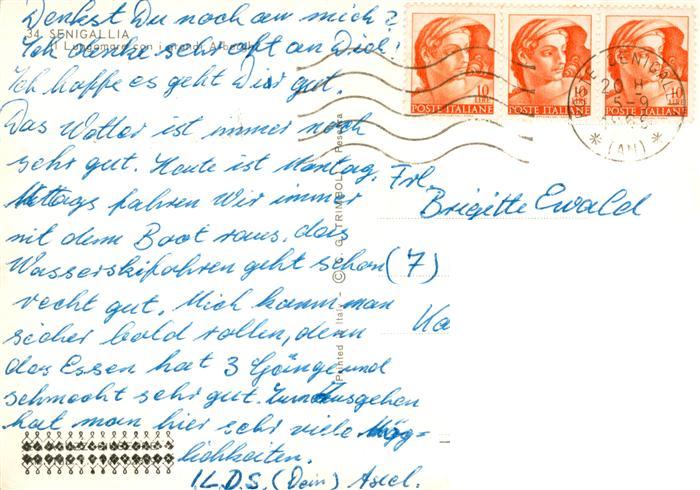 Denkst Du noch an mich?
34. SENIGALLIA
Il Lungomare con i grandi Alberghi
Ich denke sehr oft an Dich!
Ich hoffe es geht Dir gut.
Das Wetter ist immer noch
sehr gut. Heute ist Montag,
Mittags fahren Wir immer
mit dem Boot raus, das
Wasserskifahren geht schon
recht gut. Mich kann man
sicher bald rollen, denn
das Essen hat 3 Gänge und
schmeckt sehr gut. Zum Ausgehen
hat man hier sehr viele Mög-
lichkeiten.
I.L.D.S. (Dein) Axel.
Printed in Italy - © G. TRIMBOLI - Pescara
10 LIRE
POSTE ITALIANE
15 LIRE
POSTE ITALIANE
10 LIRE
POSTE ITALIANE
20 H
5-9
(AN)
Frl.
Brigitte Ewald
(7)
Ka